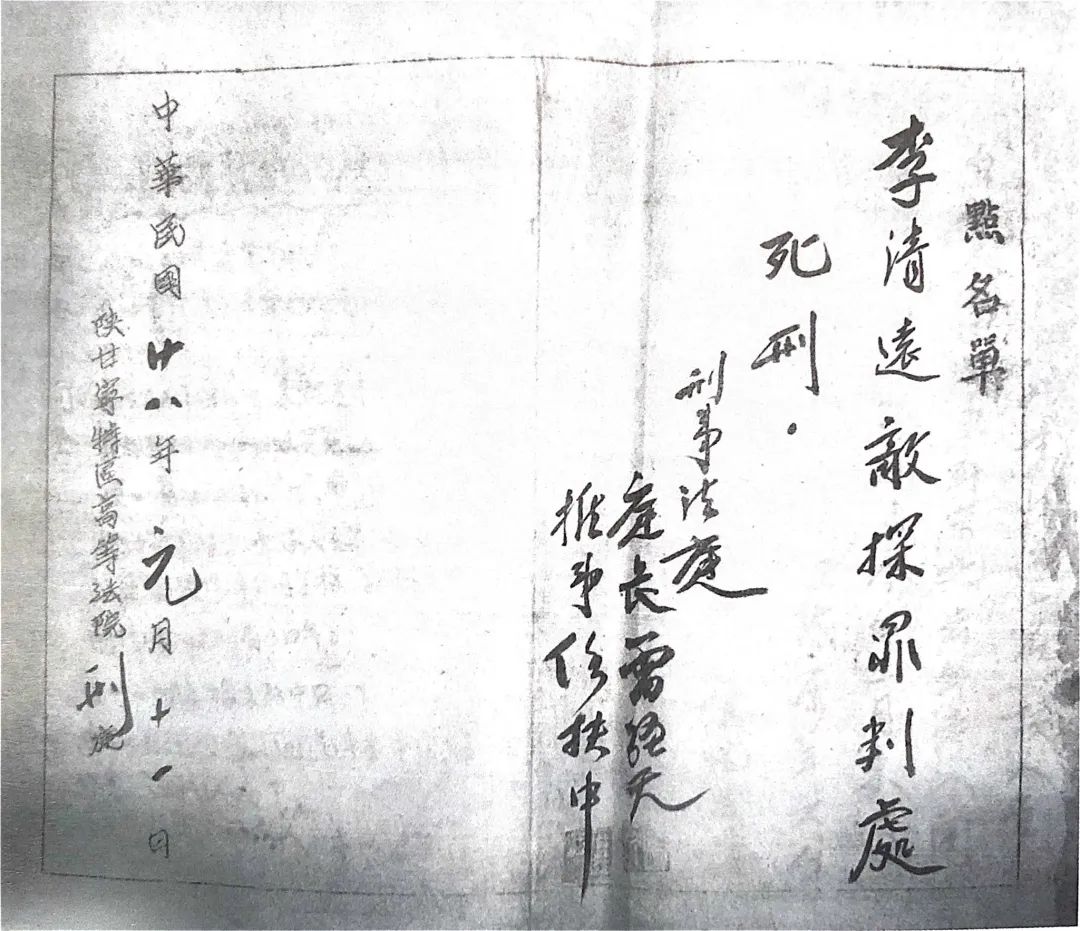 點名單
李清遠敵探罪判處
死刑.
刑事法庭
庭长雷經天
推事任扶中
中華民國廿八年元月十一日
陝甘寧特區高等法院刑庭